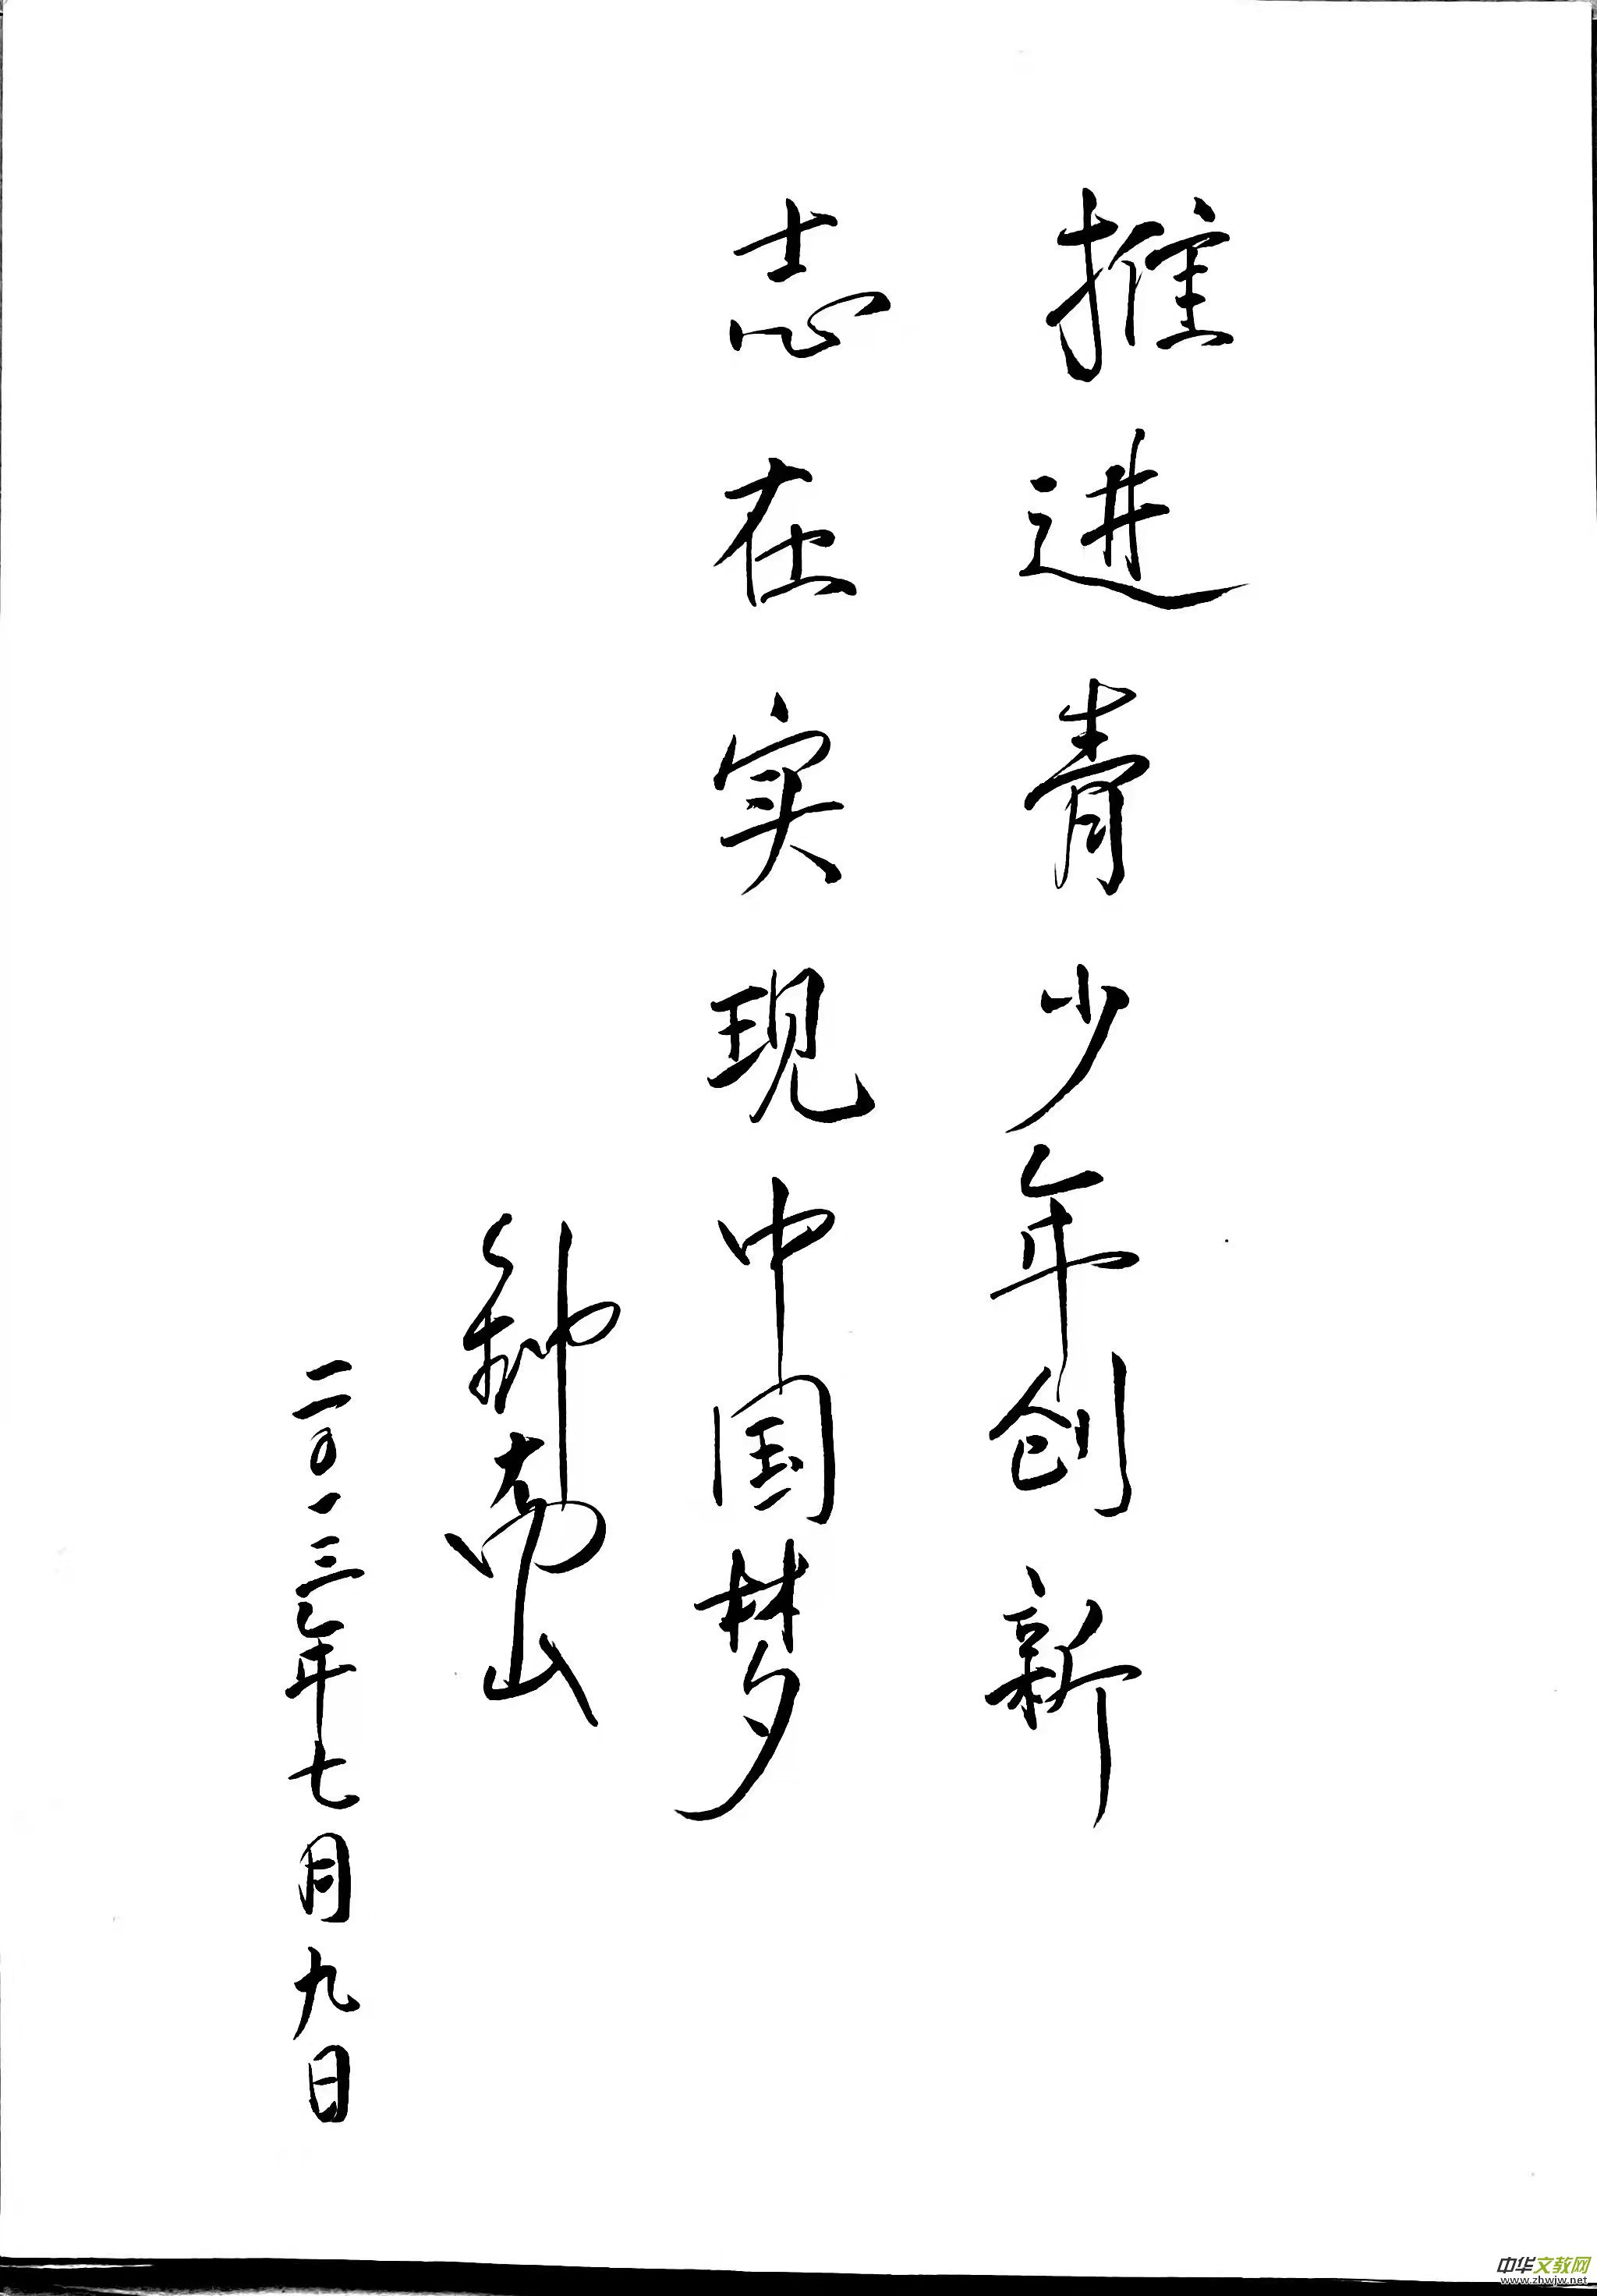 推进青少年创新
志在实现中国梦
钟南山
二〇一三年七月九日
中华文教网
www.zhwjw.net